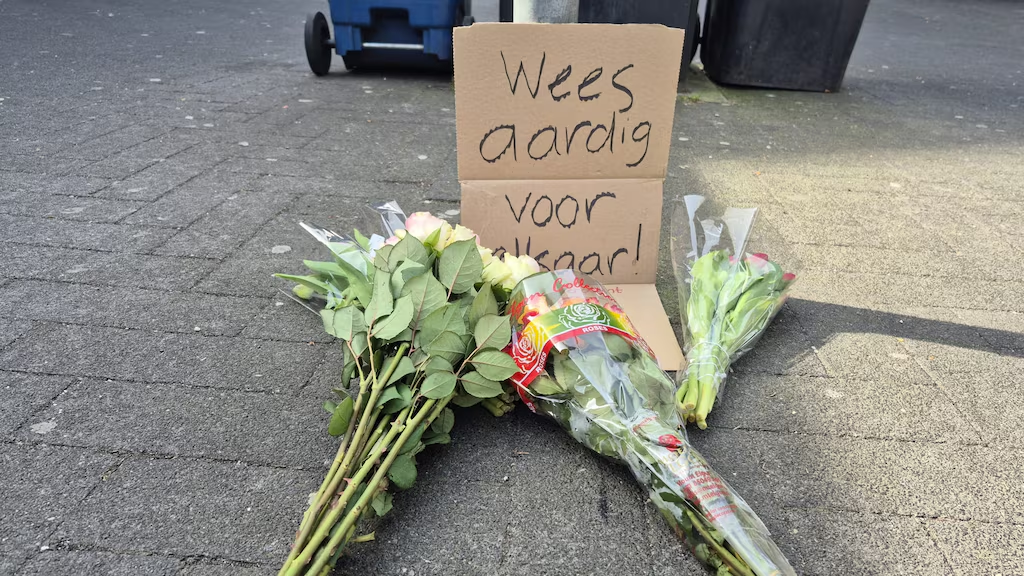 Wees
aardig
voor
elkaar!
ROSES
ROSES